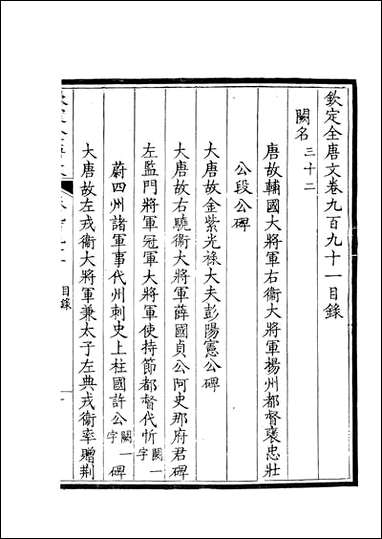 欽定全唐文卷九百九十一目錄
闕名三十二
唐故輔國大將軍右衛大將軍楊州都督褒忠壯
公段公碑
大唐故金紫光祿大夫彭陽憲公碑
大唐故右驍衛大將軍薛國貞公阿史那府君碑
左監門將軍冠軍大將軍使持節都督代忻闕一字
蔚四州諸軍事代州刺史上柱國許公闕一字碑
大唐故左戎衛大將軍兼太子左典戎衛率贈荆
目錄